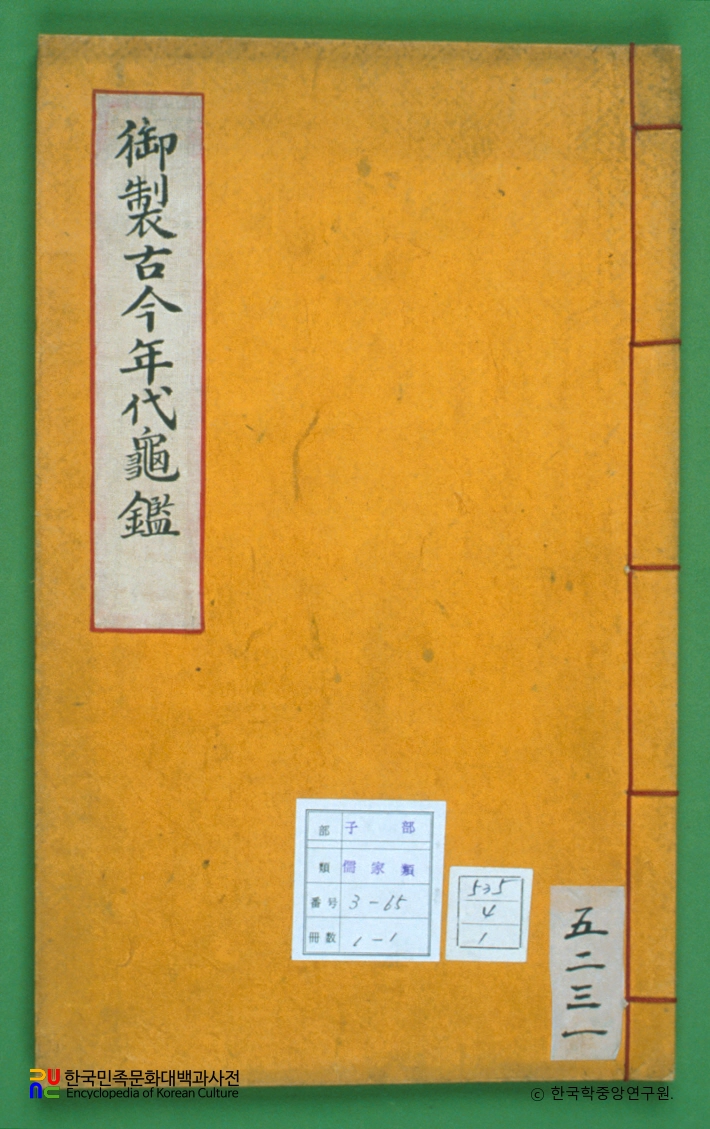 御製古今年代龜鑑
部 子 部
類 儒家類
番号 3-65
冊数 1-1
535
4
1
五二三一
한국민족문화대백과사전
Encyclopedia of Korean Culture
ⓒ 한국학중앙연구원.